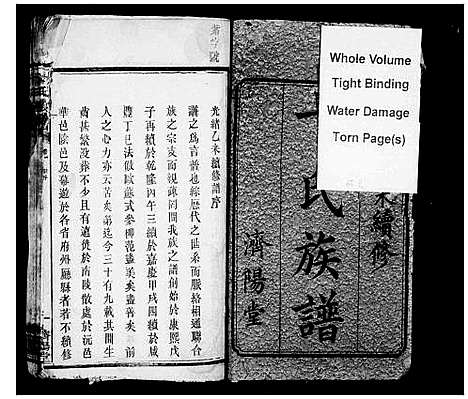 Whole Volume
Tight Binding
Water Damage
Torn Page(s)
未續修
氏族譜
濟陽堂
光緒乙未續修譜序
譜之爲言普也綜歷代之世系而脈絡相通聯合
族之宗支而親疎同間我族之譜創始於康熙戊
子再續於乾隆丙午三續於嘉慶甲戌四續於咸
豐丁巳法倣歐蘇式參柳范盡美矣盡善矣前
人之心力亦云苦矣第迄今三十有九載其間生
齒甚繁沒葬不少且有遷徙於南陵散處於沅邑
華邑陰邑及幕遊於各省府州廳縣者若不續修